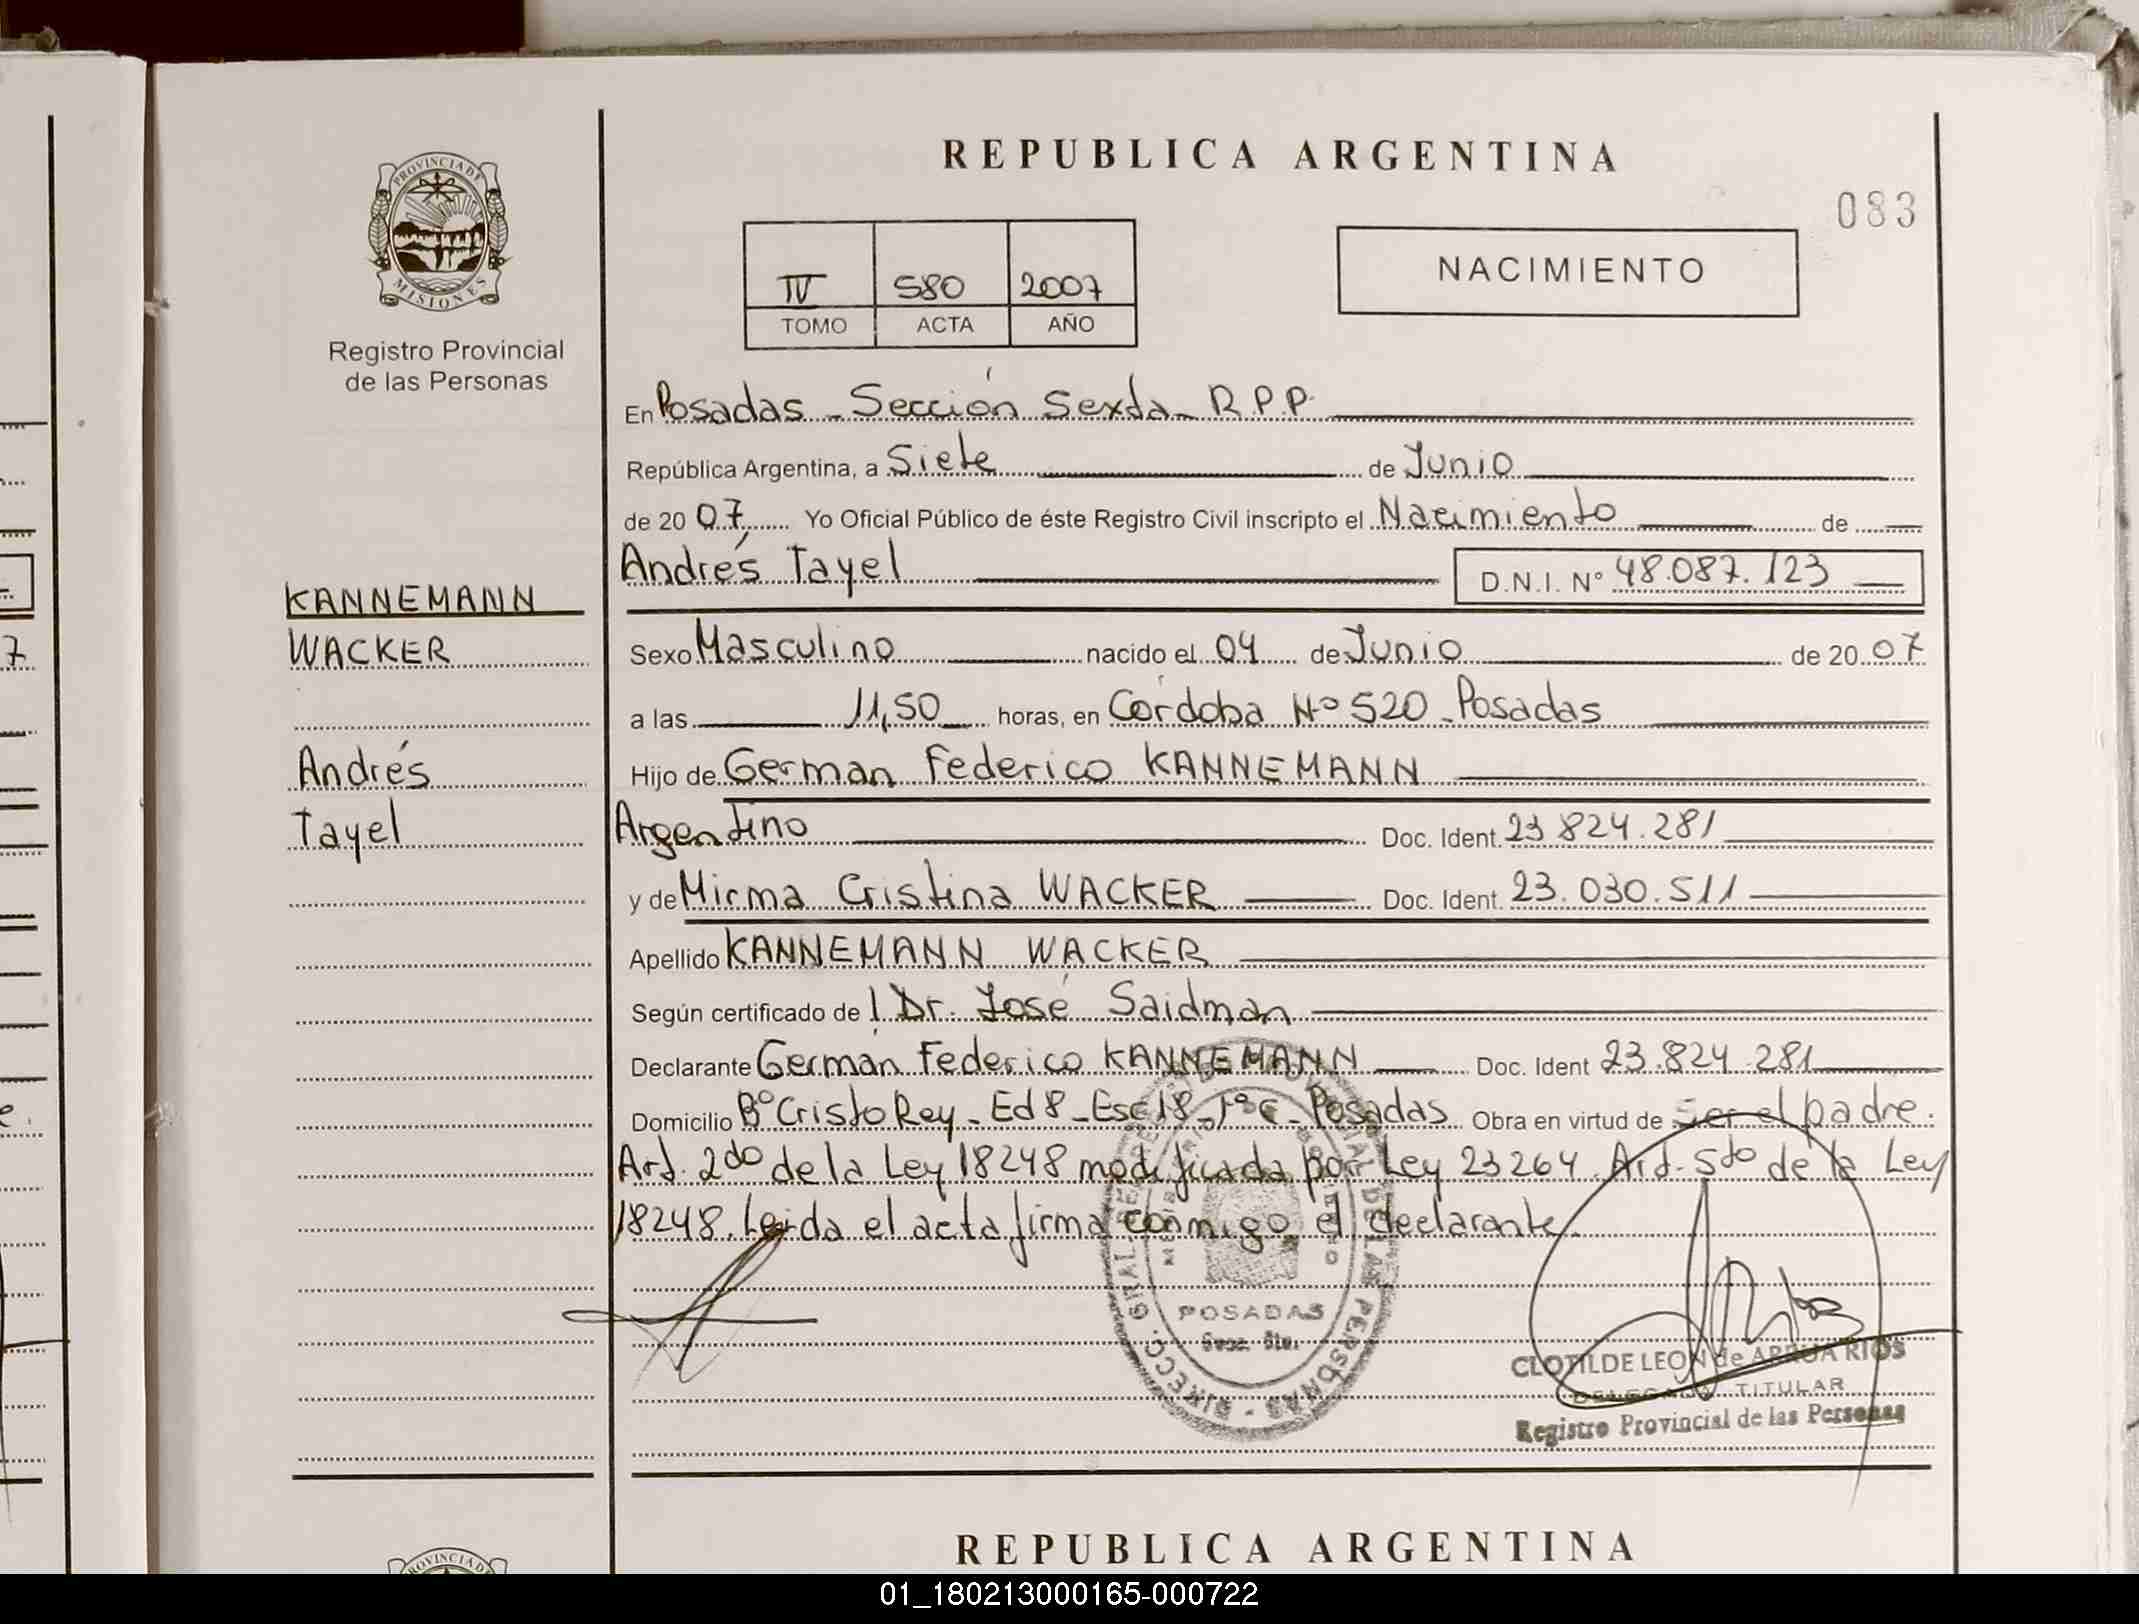 REPUBLICA ARGENTINA
083
PROVINCIA DE
MISIONES
Registro Provincial
de las Personas
IV 580 2007
TOMO ACTA AÑO
NACIMIENTO
En Posadas - Sección Sexta - R.P.P.
República Argentina, a Siete de Junio
de 20 07 Yo Oficial Público de éste Registro Civil inscripto el Nacimiento de
Andrés Tayel D.N.I. Nº 48.087.123
KANNEMANN
WACKER
Sexo Masculino nacido el 04 de Junio de 20 07
a las 11,50 horas, en Córdoba Nº 520 - Posadas
Andrés
Tayel
Hijo de German Federico KANNEMANN
Argentino Doc. Ident. 23.824.281
y de Mirma Cristina WACKER Doc. Ident. 23.030.511
Apellido KANNEMANN WACKER
Según certificado de l Dr. José Saidman
Declarante Germán Federico KANNEMANN Doc. Ident 23.824.281
Domicilio Bº Cristo Rey - Ed 8 - Esc 18 - 1º C - Posadas Obra en virtud de Ser el padre.
Art. 2do de la Ley 18248 modificada por Ley 23264. Art. 5to de la Ley
18248. Leída el acta firma conmigo el declarante.
POSADAS
Secc. 6ta.
CLOTILDE LEON de ARRUA RIOS
DELEGADA TITULAR
Registro Provincial de las Personas
REPUBLICA ARGENTINA
PROVINCIA DE
01_180213000165-000722